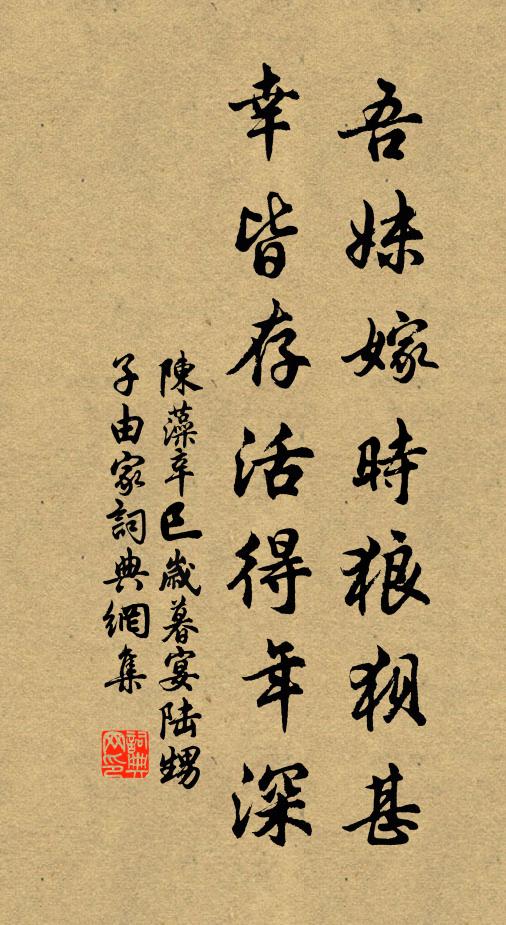 吾妹嫁時狼狽甚
幸皆存活得年深
陳藻辛巳歲暮宴陸甥
子由家詞典網集
詞典
网印